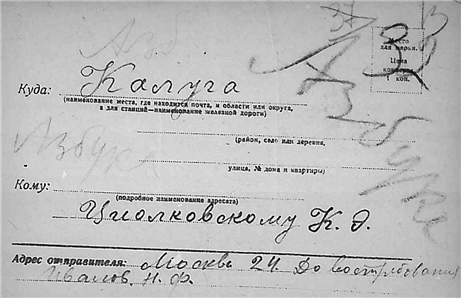 Азбука
Место
для марки.
Цена
коп.
Куда: Калуга
(наименование места, где находится почта, и области или округа,
а для станций—наименование железной дороги)
Азбука
(район, село или деревня,
улица, № дома и квартиры)
Кому:
(подробное наименование адресата)
Циолковскому К. Э.
Адрес отправителя: Москва 24 До востребования
Иванов. Н. Ф.